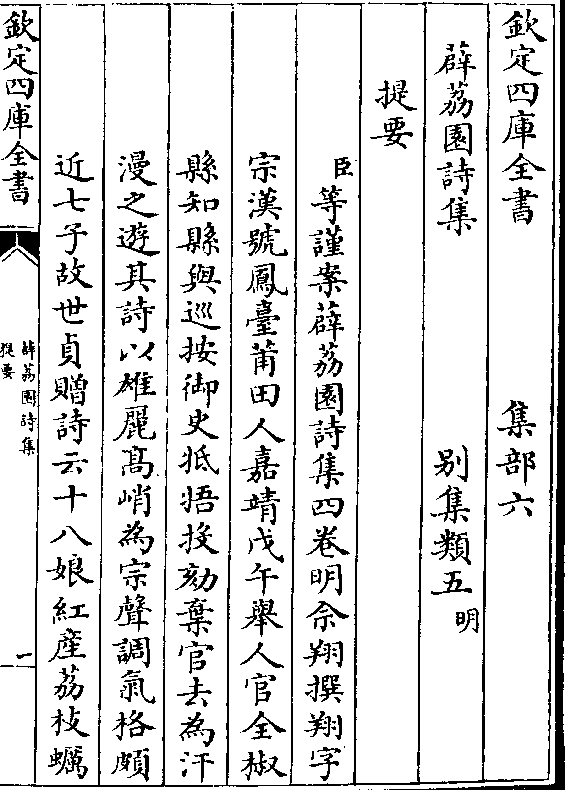 欽定四庫全書 集部六
薜荔園詩集 别集類五明
提要
臣等謹案薜荔園詩集四卷明佘翔撰翔字
宗漢號鳳臺莆田人嘉靖戊午舉人官全椒
縣知縣與巡按御史牴牾投劾棄官去為汗
漫之遊其詩以雄麗髙峭為宗聲調氣格頗
近七子故世貞贈詩云十八娘紅産荔枝蠣
欽定四庫全書
薜荔園詩集
提要
一